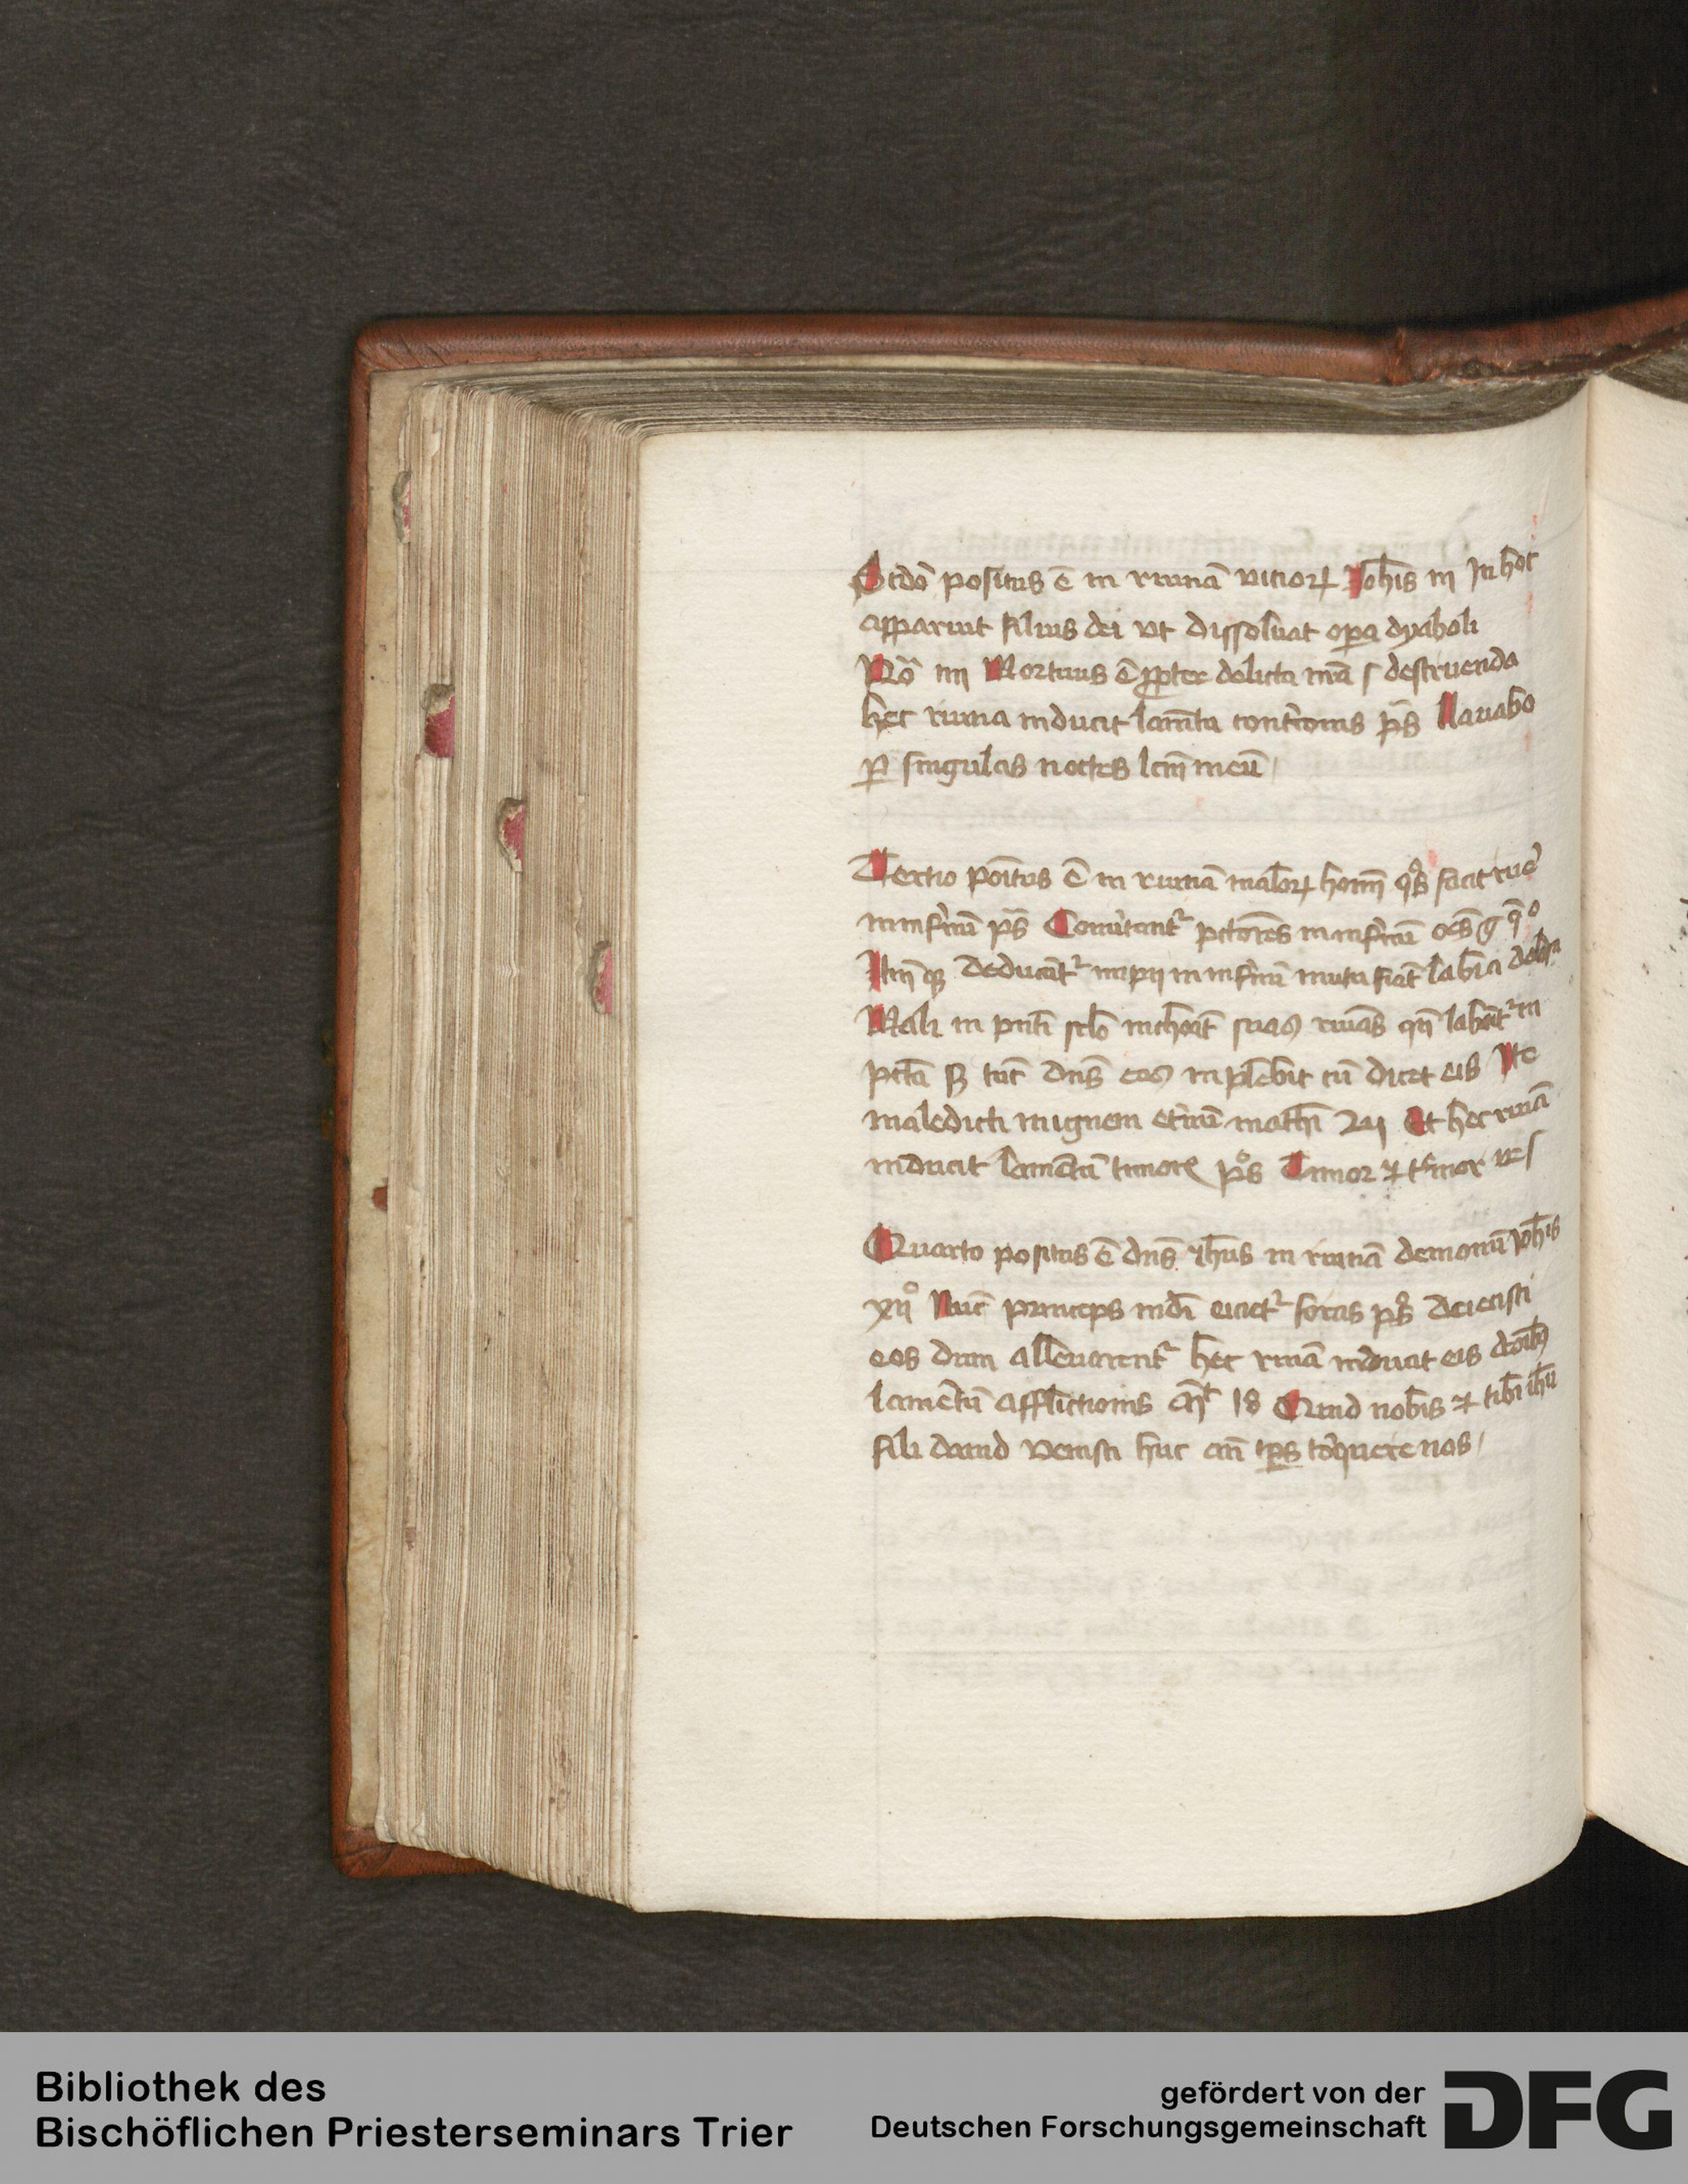 Scdo positus ē in ruinā uitioꝝ Joh̄is iii In hoc
apparuit filius dei vt dissoluat opa dyaboli
Ro iiii Mortuus ē ꝓpter delicta nr̄a destruenda
hec ruina inducit lamēta cont̄ionis p̄s Lauabo
ꝑ singulas noctes lcm̄ meū
Tertio poītus ē in ruinā maloꝝ hoīm q°s facit rue
in infnū ps̄ Conutant᷑ pctores in infnū oēs
Itm̄ Deducāt᷑ impii in infnū muta fiāt labia dolosa
Mali in pn̄ti sclo inchoāt suas ruīas qn̄ labūt᷑ in
pctā tūc dn̄s eos inplebit cū dicet eis Ite
maledicti in ignem et̄nū math̄i 2ij Et hec ruīa
inducit lamētū timoris p°s Timor ⁊ t̄mor
Quarto positus ē dn̄s ih̄us in ruinā demonū Joh̄is
xii° Nūc princeps mdī eiciet᷑ foras p°s Deiecisti
eos dum alleuarent᷑ hec ruīa inducit eis
lamētū afflictionis 18 Quid nobis ⁊ tibi ih̄u
fili dauid venisti huc an̄ tp̄s torquere nos
Bibliothek des
Bischöflichen Priesterseminars Trier
gefördert von der
Deutschen Forschungsgemeinschaft
DFG